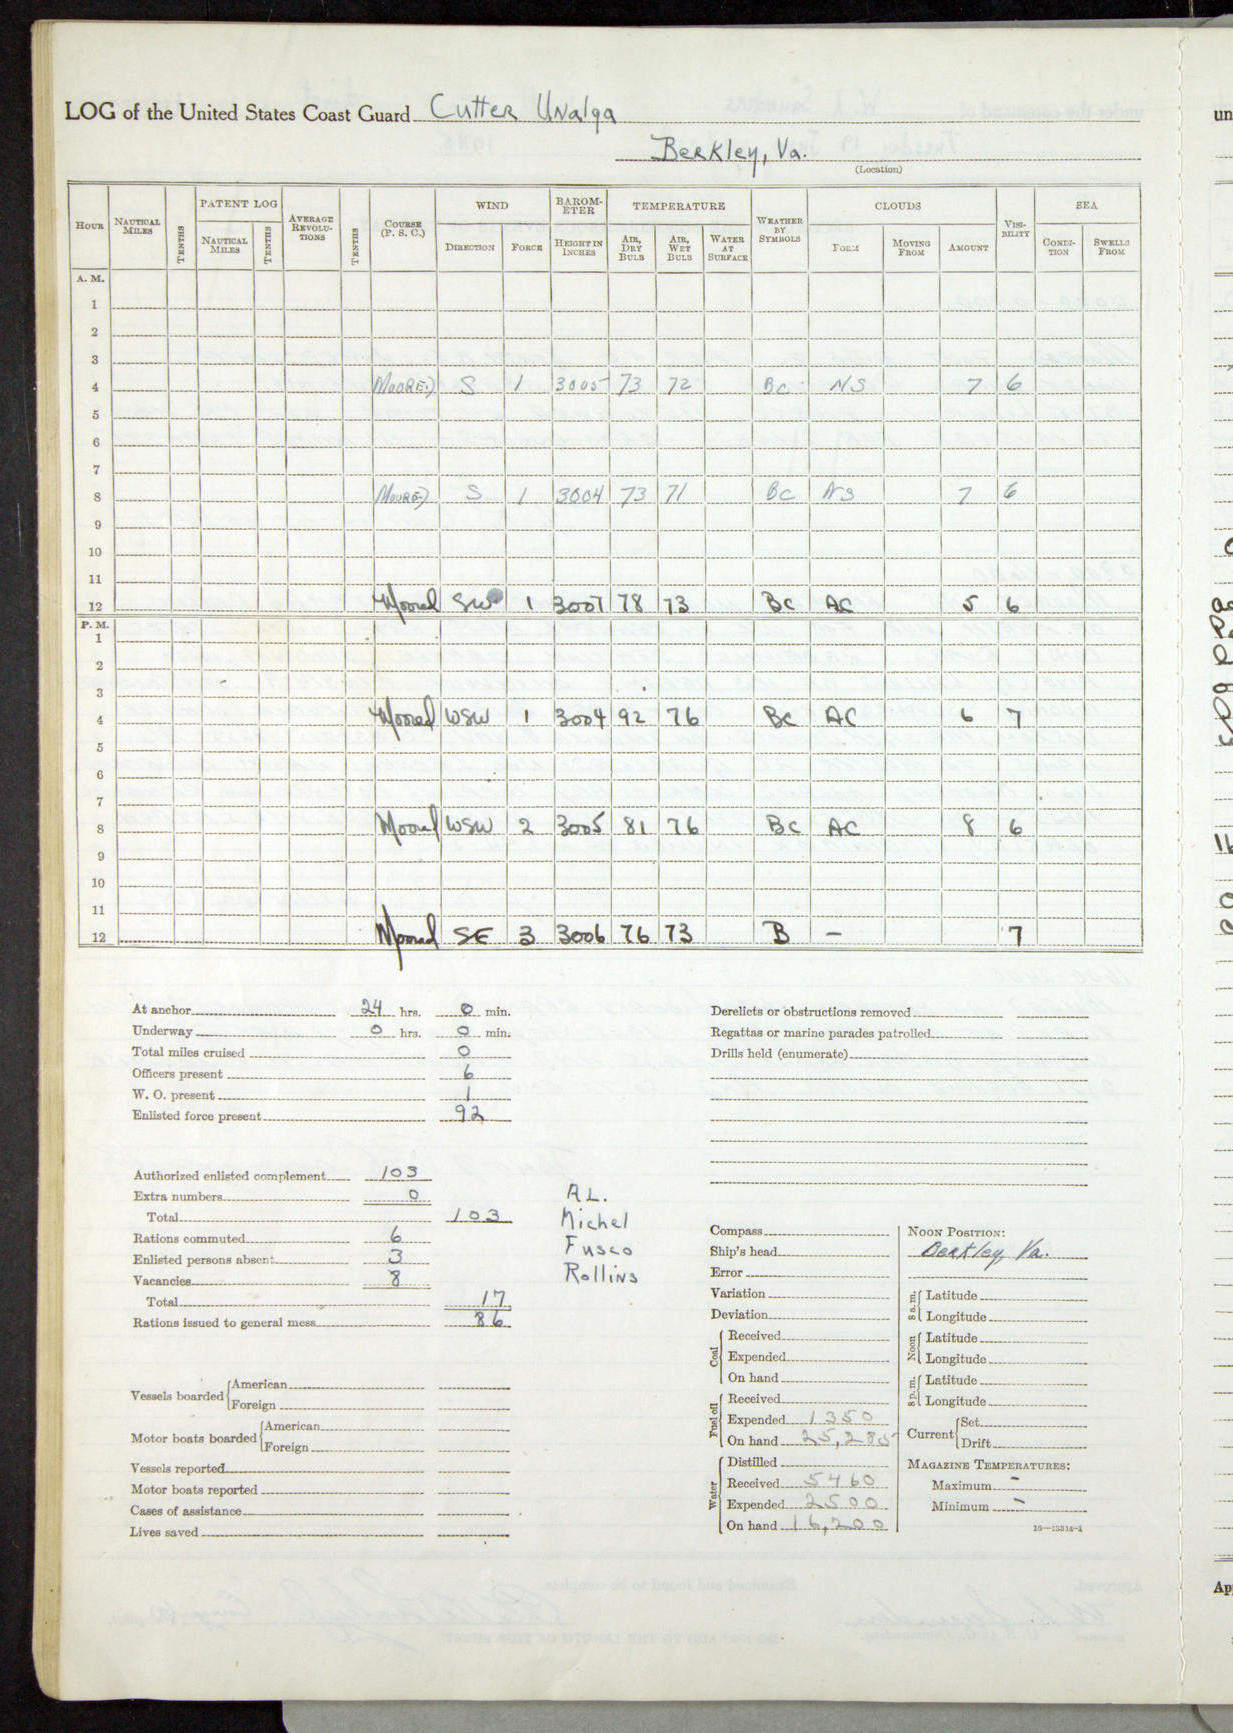 LOG of the United States Coast Guard Cutter Unalga
Berkley, Va.
(Location)
HOUR NAUTICAL MILES TENTHS PATENT LOG NAUTICAL MILES TENTHS AVERAGE REVOLUTIONS TENTHS COURSE (P. S. C.) WIND DIRECTION FORCE BAROMETER HEIGHT IN INCHES TEMPERATURE AIR, DRY BULB AIR, WET BULB WATER AT SURFACE WEATHER BY SYMBOLS CLOUDS FORM MOVING FROM AMOUNT VISIBILITY SEA CONDITION SWELLS FROM
A. M.
1
2
3
4 Moored S 1 3005 73 72 BC NS 7 6
5
6
7
8 Moored S 1 3004 73 71 BC NS 7 6
9
10
11
12 Moored SW 1 3007 78 73 BC AC 5 6
P. M.
1
2
3
4 Moored WSW 1 3004 92 76 BC AC 6 7
5
6
7
8 Moored WSW 2 3005 81 76 BC AC 8 6
9
10
11
12 Moored SE 3 3006 76 73 B – 7
At anchor 24 hrs. 0 min.
Underway 0 hrs. 0 min.
Total miles cruised 0
Officers present 6
W. O. present 1
Enlisted force present 92
Authorized enlisted complement 103
Extra numbers 0
Total 103
Rations commuted 6
Enlisted persons absent 3
Vacancies 8
Total 17
Rations issued to general mess 86
A.L.
Michel
Fusco
Rollins
Vessels boarded { American
Foreign
Motor boats boarded { American
Foreign
Vessels reported
Motor boats reported
Cases of assistance
Lives saved
Derelicts or obstructions removed
Regattas or marine parades patrolled
Drills held (enumerate)
Compass
Ship's head
Error
Variation
Deviation
Coal { Received
Expended
On hand
Fuel oil { Received
Expended 1350
On hand 25,285
Water { Distilled
Received 5460
Expended 2500
On hand 16,200
NOON POSITION:
Berkley, Va.
8 a. m. { Latitude
Longitude
Noon { Latitude
Longitude
8 p. m. { Latitude
Longitude
Current { Set
Drift
MAGAZINE TEMPERATURES:
Maximum –
Minimum –
16—13314-1